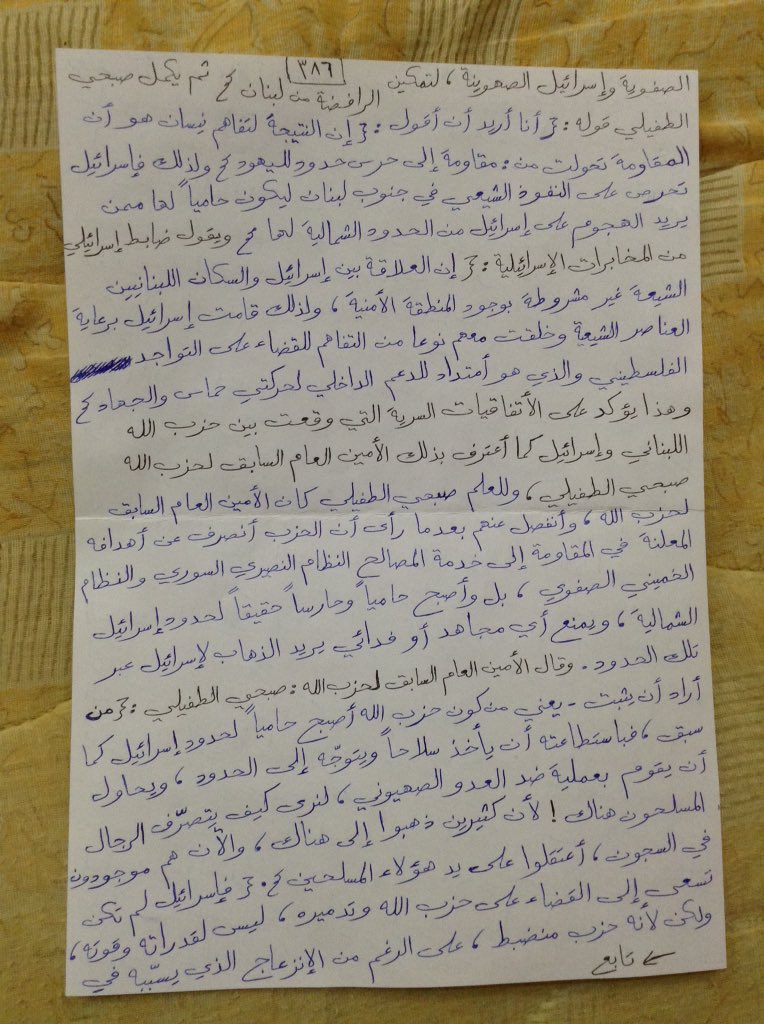 [٣٨٦]
الصفوية وإسرائيل الصهيونية، لتمكين الرافضة من لبنان» ثم يكمل صبحي
الطفيلي قوله: «أنا أريد أن أقول: «إن النتيجة لتفاهم نيسان هو أن
المقاومة تحولت من: مقاومة إلى حرس حدود لليهود» ولذلك فإسرائيل
تحرص على النفوذ الشيعي في جنوب لبنان ليكون حامياً لها ممن
يريد الهجوم على إسرائيل من الحدود الشمالية لها» ويقول ضابط إسرائيلي
من المخابرات الإسرائيلية: «إن العلاقة بين إسرائيل والسكان اللبنانيين
الشيعة غير مشروطة بوجود المنطقة الأمنية، ولذلك قامت إسرائيل برعاية
العناصر الشيعية وخلقت معهم نوعا من التفاهم للقضاء على التواجد
الفلسطيني والذي هو أمتداد للدعم الداخلي لحركتي حماس والجهاد»
وهذا يؤكد على الأتفاقيات السرية التي وقعت بين حزب الله
اللبناني وإسرائيل كما أعترف بذلك الأمين العام السابق لحزب الله
صبحي الطفيلي، وللعلم صبحي الطفيلي كان الأمين العام السابق
لحزب الله، وأنفصل عنهم بعدما رأى أن الحزب أنصرف عن أهدافه
المعلنة في المقاومة إلى خدمة المصالح النظام النصيري السوري والنظام
الخميني الصفوي، بل وأصبح حامياً وحارساً حقيقاً لحدود إسرائيل
الشمالية، ويمنع أي مجاهد أو فدائي يريد الذهاب لإسرائيل عبر
تلك الحدود. وقال الأمين العام السابق لحزب الله: صبحي الطفيلي: «من
أراد أن يثبت - يعني من كون حزب الله أصبح حامياً لحدود إسرائيل كما
سبق، فباستطاعته أن يأخذ سلاحاً ويتوجّه إلى الحدود، ويحاول
أن يقوم بعملية ضد العدو الصهيوني، لنرى كيف يتصرّف الرجال
المسلحون هناك! لأن كثيرين ذهبوا إلى هناك، والآن هم موجودون
في السجون، أعتقلوا على يد هؤلاء المسلحين». «فإسرائيل لم تكن
تسعى إلى القضاء على حزب الله وتدميره، ليس لقدراته وقوته،
ولكن لأنه حزب منضبط، على الرغم من الإنزعاج الذي يسبّبه في
← تابع